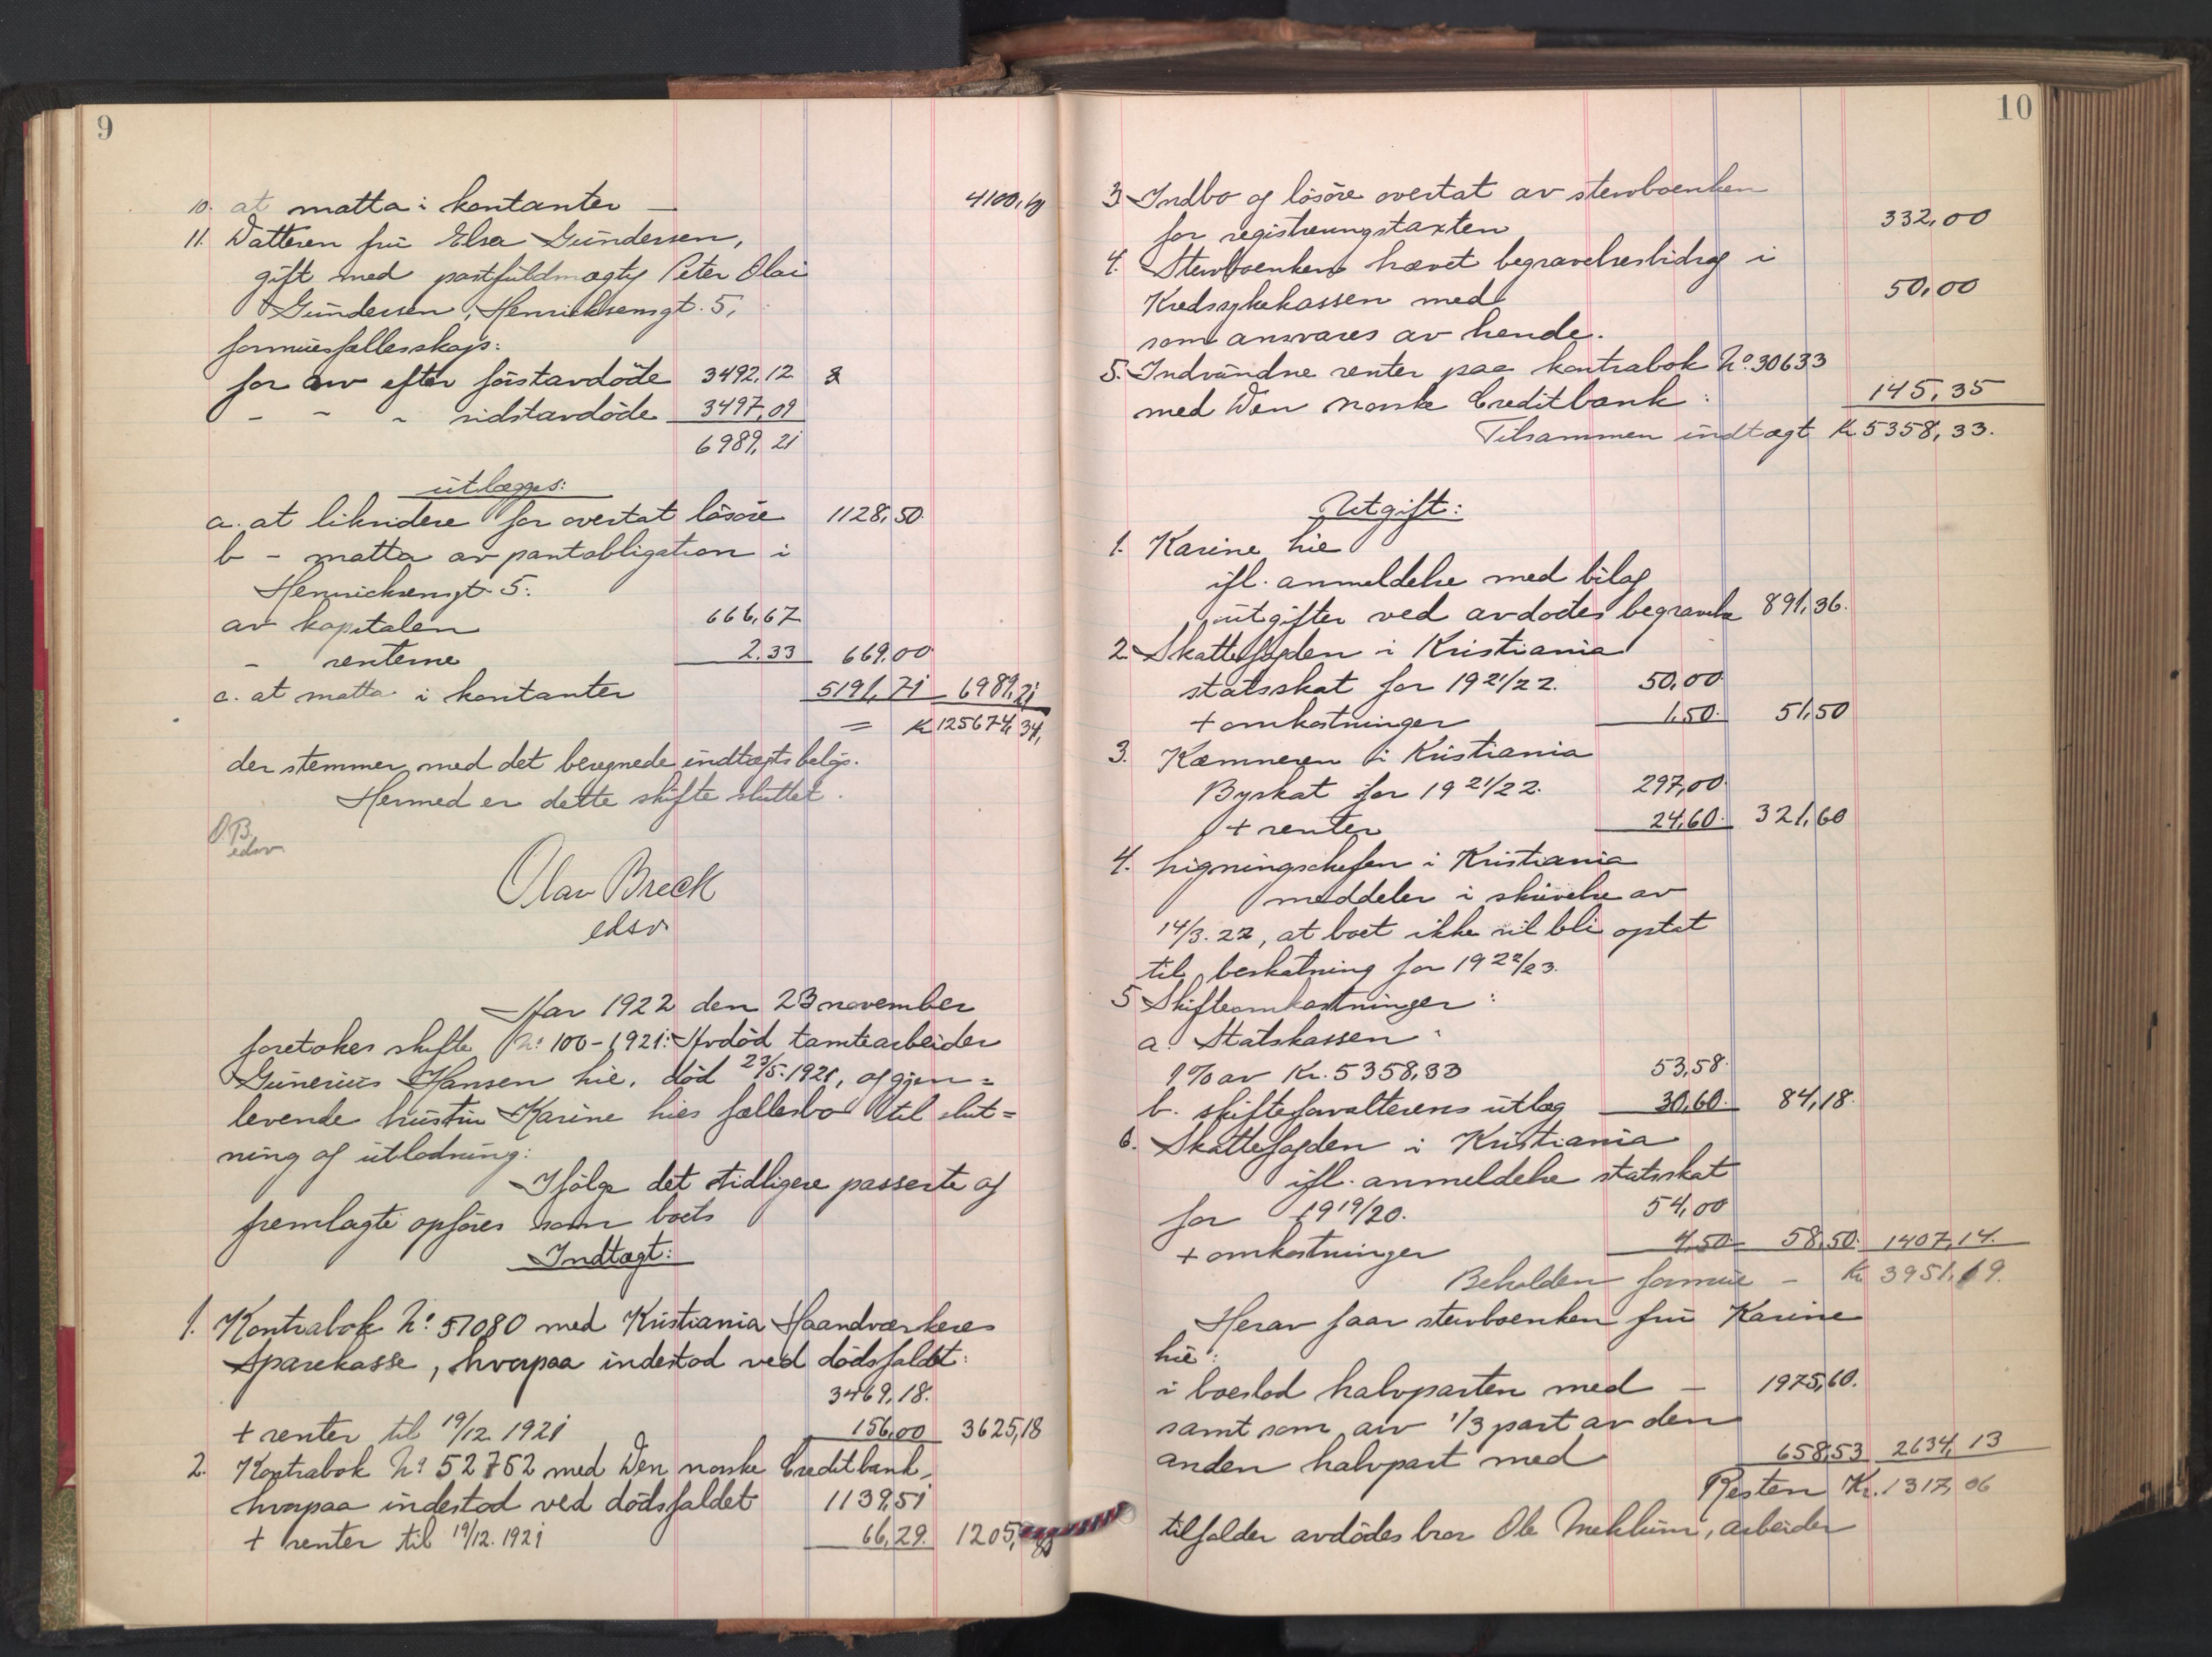 9
10. at motta i kontanter — 4100,69
11. Datteren fru Elsa Gundersen,
gift med postfuldmægtig Peter Olai
Gundersen, Henriksensgt. 5,
formuesfællesskap:
for arv efter førstavdøde 3492,12
- - - sidstavdøde 3497,09
6989,21
utlægges:
a. at likvidere for overtat løsøre 1128,50
b - motta av pantobligation i
Henrichsensgt 5:
av kapitalen 666,67
- renterne 2.33 669,00
c. at motta i kontanter 5191,71 6989,21
= Kr 125674,34,
der stemmer med det beregnede indtægtsbeløp.
Hermed er dette skifte sluttet.
O.B.
edsv
Olav Breck
edsv
Aar 1922 den 23 november
foretokes skifte No 100-1921: Avdød tomtearbeider
Gunerius Hansen Lie, død 23/5.1921, og gjen=
levende hustru Karine Lies fællesbo til slut=
ning og utlodning:
Ifølge det tidligere passerte og
fremlagte opføres som boets
Indtægt:
1. Kontrabok No 57080 med Kristiania Haandverkeres
Sparekasse, hvorpaa indestod ved dødsfaldet:
3469,18.
+ renter til 19/12 1921 156,00 3625,18
2. Kontrabok No 52752 med Den norske Creditbank,
hvorpaa indestod ved dødsfaldet 1139,51
+ renter til 19/12.1921 66,29. 1205,80
10
3 Indbo og løsøre overtat av stervboenken
for registreringstaxten 332,00
4. Stervboenken hævet begravelsesbidrag i
Kredssykekassen med 50,00
som ansvares av hende.
5. Indvundne renter paa kontrabok No. 30633
med Den norske Creditbank: 145,35
Tilsammen indtægt Kr. 5358,33.
Utgift:
1. Karine Lie
ifl. anmeldelse med bilag
utgifter ved avdødes begravelse 891,36.
2. Skattefogden i Kristiania
statsskat for 1921/22. 50,00
+ omkostninger 1,50. 51,50
3. Kæmneren i Kristiania
Byskat for 1921/22. 297,00.
+ renter 24,60. 321,60
4. Ligningschefen i Kristiania
meddeler i skrivelse av
14/3.22, at boet ikke vil bli optat
til beskatning for 1922/23.
5 Skifteomkostninger:
a. Statskassen:
1% av Kr. 5358,33 53,58.
b. skifteforvalterens utlæg 30,60. 84,18.
6. Skattefogden i Kristiania
ifl. anmeldelse statsskat
for 1919/20. 54,00
+ omkostninger 4,50 58,50. 1407,14.
Beholden formue - Kr 3951,19.
Herav faar stervboenken fru Karine
Lie:
i boeslod halvparten med — 1975,60.
samt som arv 1/3 part av den
anden halvpart med 658,53 2634,13
Resten Kr. 1317,06
tilfalder avdødes bror Ole Meklum, arbeider